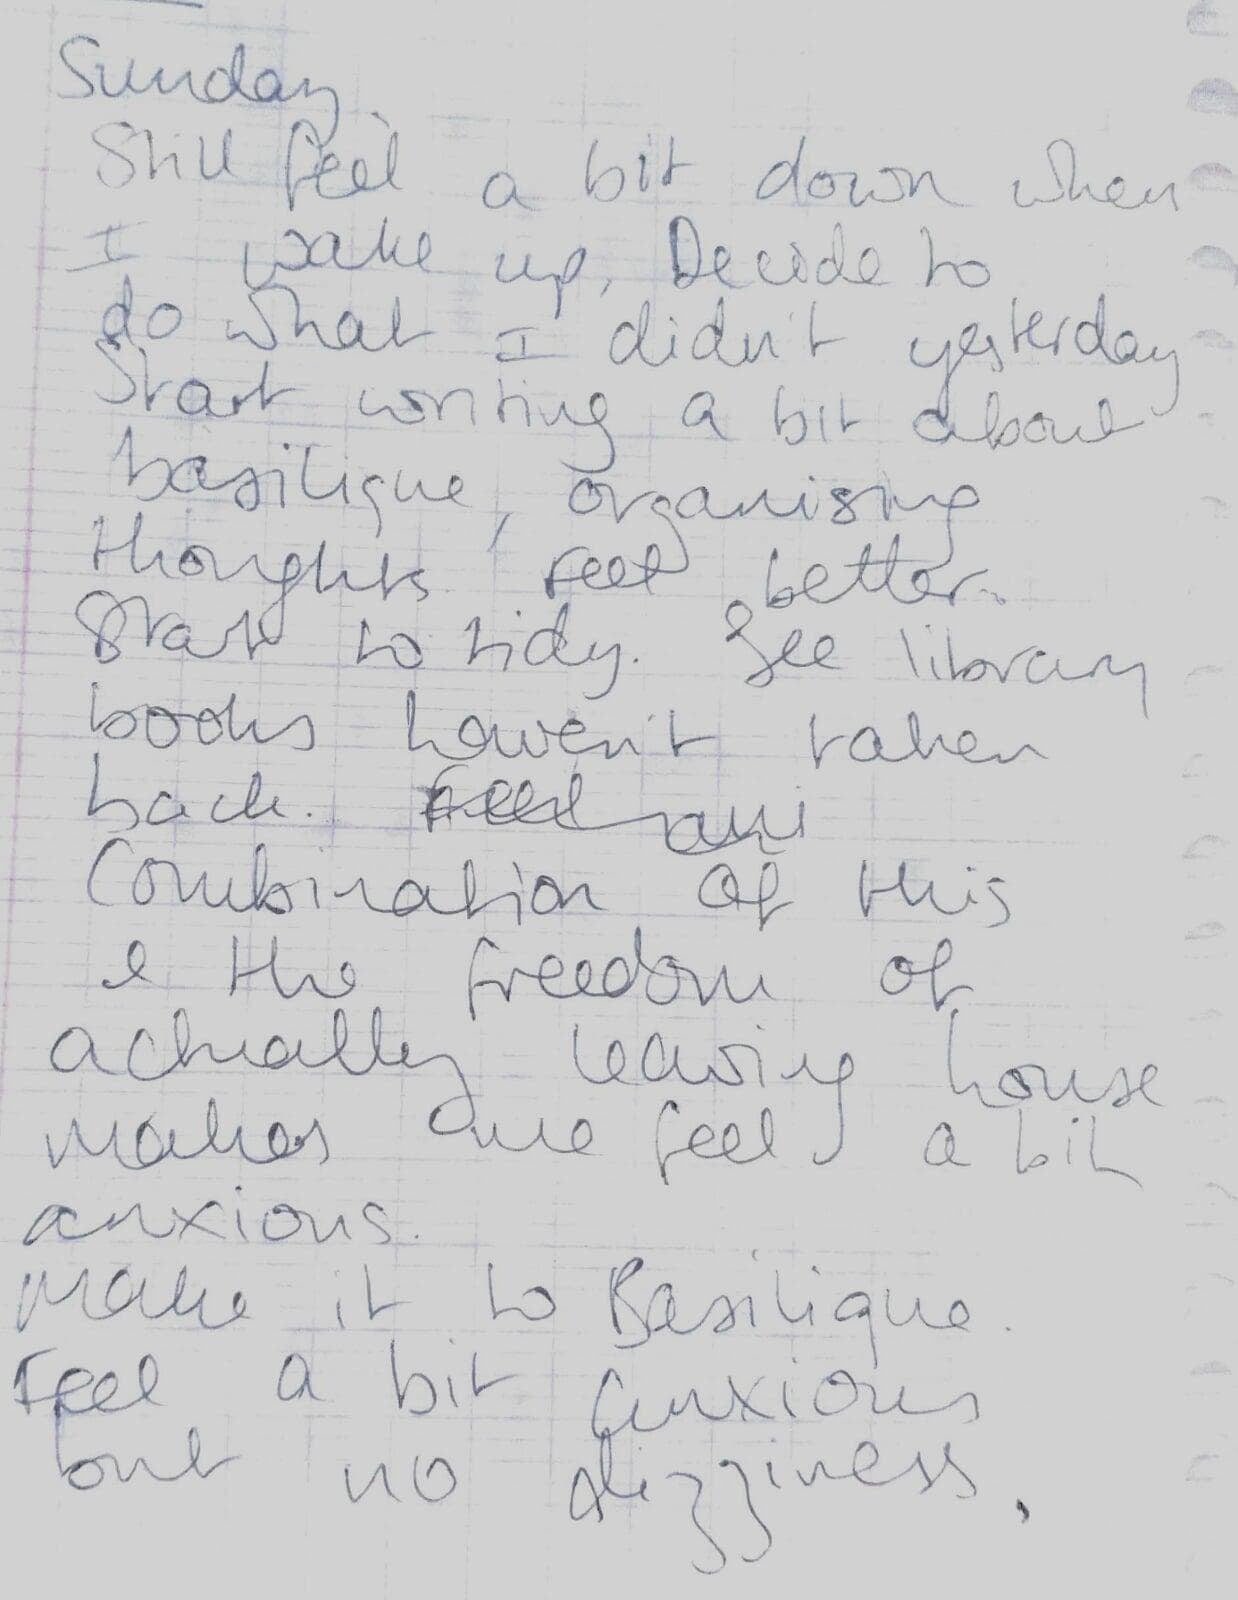 Sunday.
Still feel a bit down when
I wake up. Decide to
do what I didn't yesterday
Start writing a bit about
basilique, organising
thoughts. Feel better.
Start to tidy. See library
books haven't taken
back. Feel
Combination of this
& the freedom of
actually leaving house
makes me feel a bit
anxious.
Make it to Basilique.
Feel a bit anxious
but no dizziness.